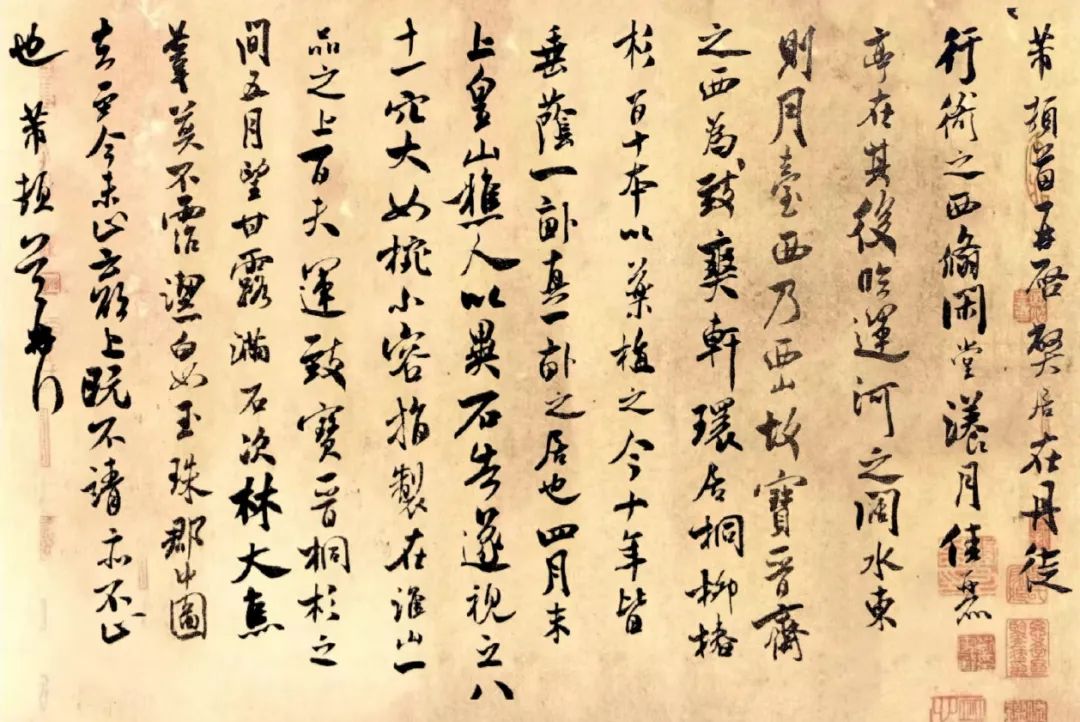 芾頓首再啓弊居在丹徒
行衙之西翛閑堂漾月佳麗
亭在其後臨運河之闊水東
則月臺西乃西山故寶晉齋
之西為致爽軒環居桐柳椿
杉百十本以藥植之今十年皆
垂蔭一畝真一畝之居也四月末
上皇山樵人以異石告遂視之八
十一穴大如椀小容指製在淮山一
品之上百夫運致寶晉桐杉之
間五月望甘露滿石次林大焦
莫不霑潔白如玉珠郡中圖
去至今未止云欲上既不請亦不止
也芾頓首再拜